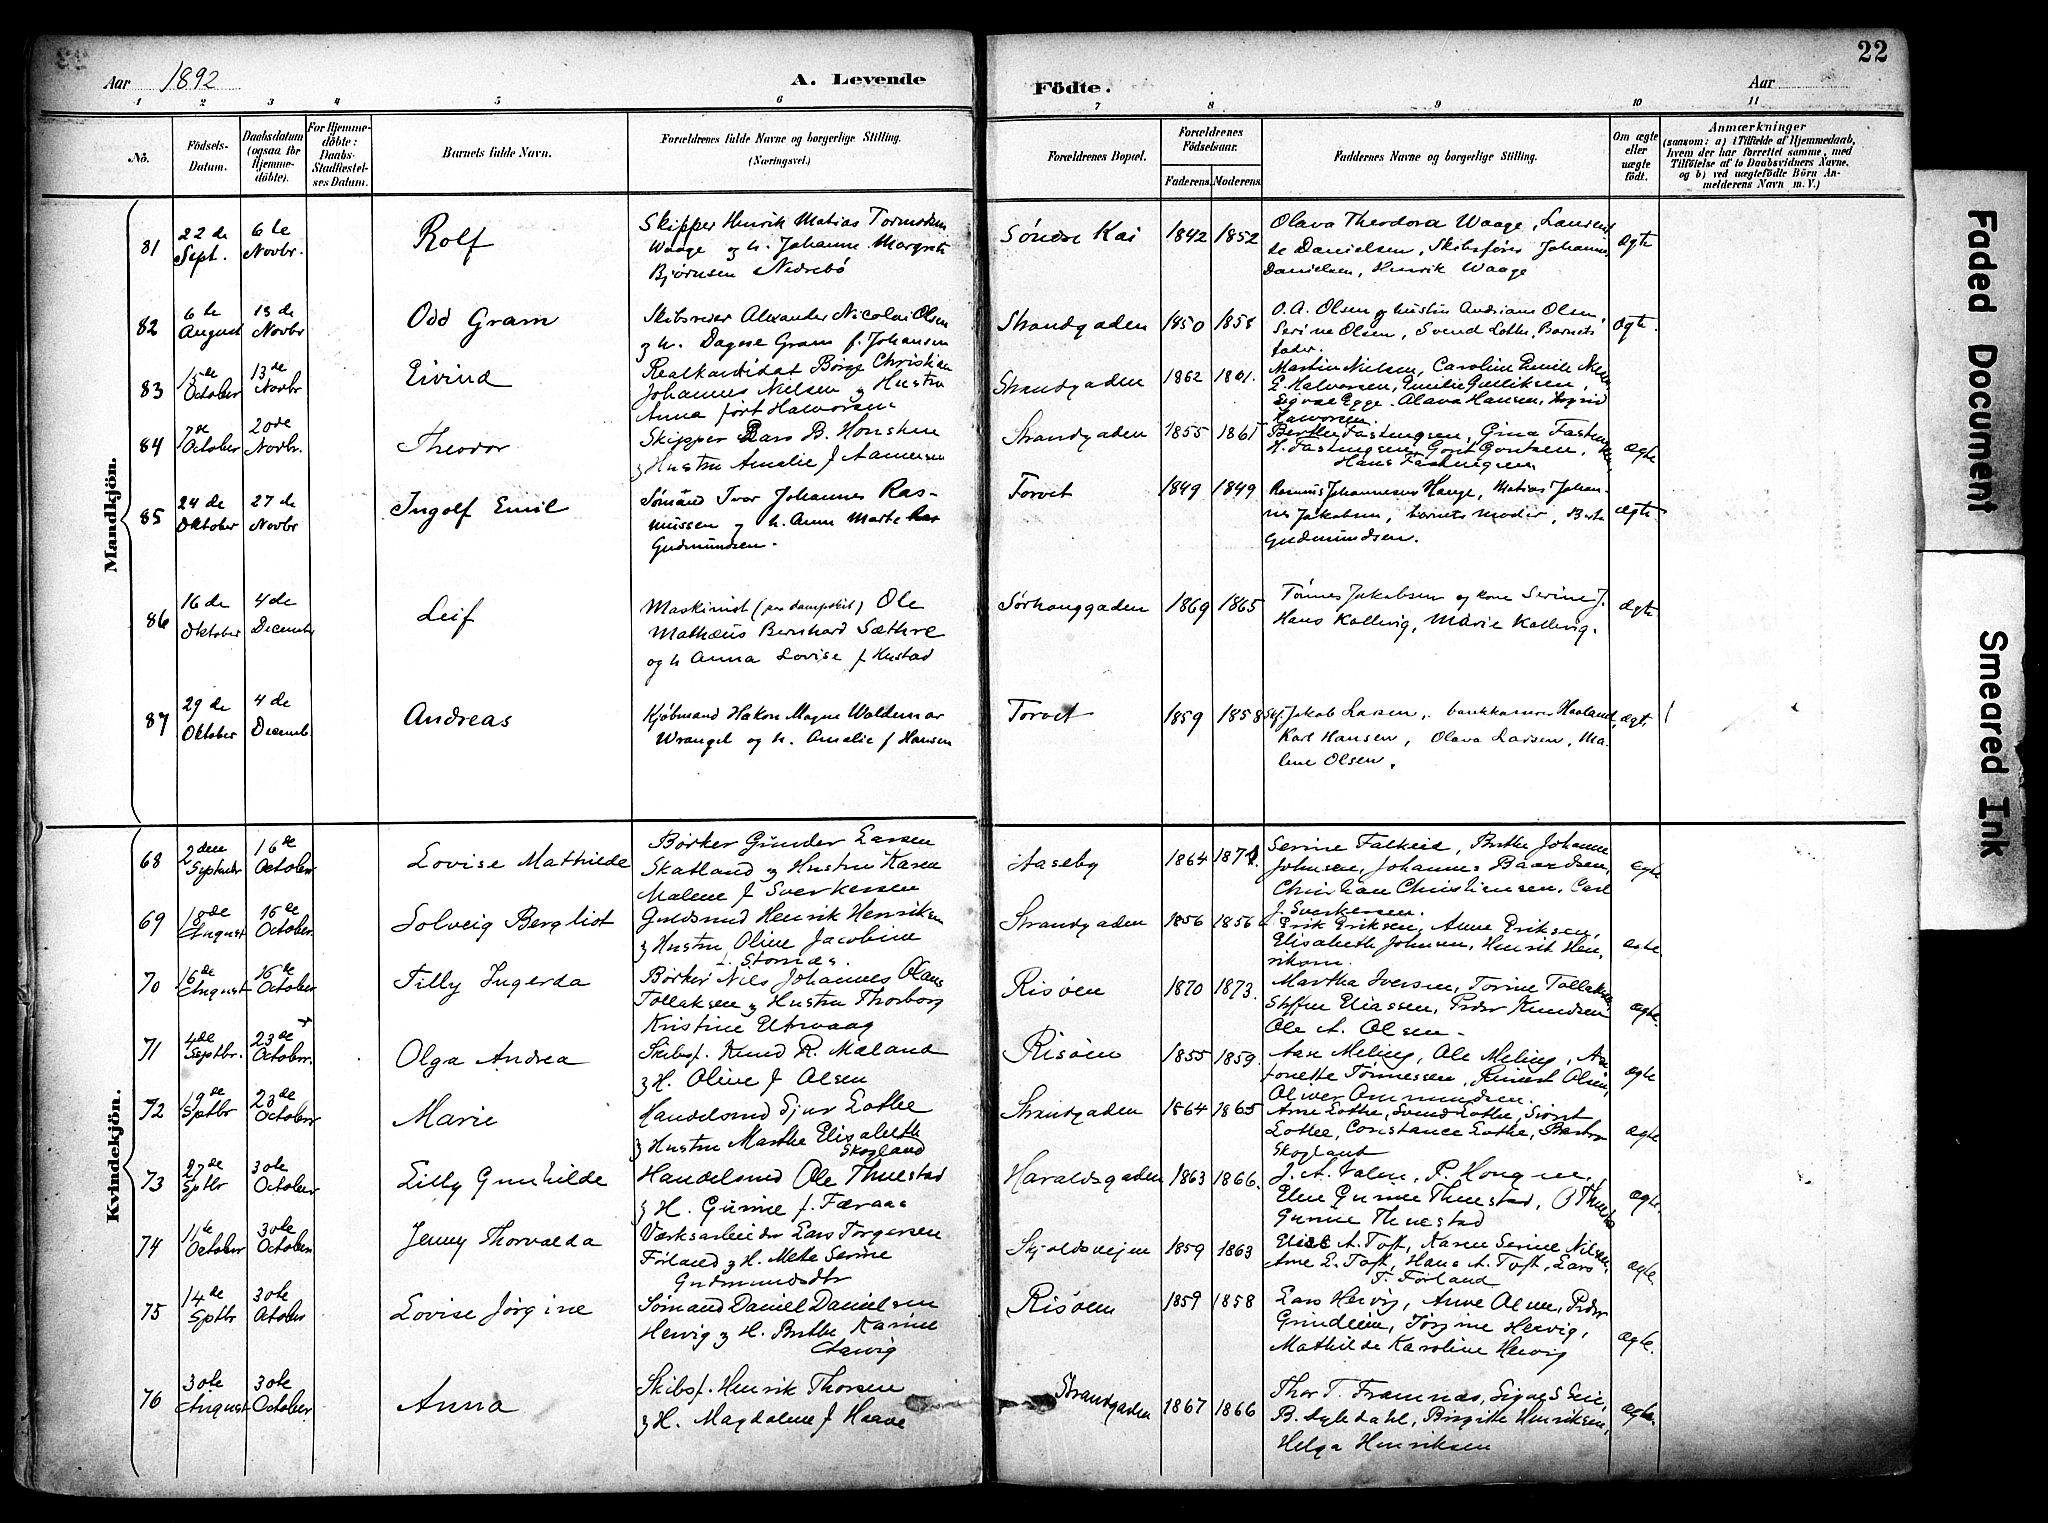 22
Aar 1892
A. Levende Födte.
Aar
1 2 3 4 5 6 7 8 9 10 11
Nö.
Födsels-Datum.
Daabsdatum (ogsaa for Hjemme-döbte).
For Hjemme-döbte: Daabs-Stadfæstel-ses Datum.
Barnets fulde Navn.
Forældrenes fulde Navne og borgerlige Stilling.
(Næringsvei.)
Forældrenes Bopæl.
Forældrenes Födselsaar.
Faderens. Moderens.
Faddernes Navne og borgerlige Stilling.
Om ægte eller uægte födt.
Anmærkninger
(saasom: a) i Tilfælde af Hjemmedaab,
hvem der har forrettet samme, med
Tilföielse af to Daabsvidners Navne,
og b) ved uægtefödte Börn An-
melderens Navn m. V.)
Mandkjön.
81 22de Sept. 6te Novbr. Rolf
Skipper Henrik Matias Tormodsen
Waage og h. Johanne Margrete
Bjørnsen Nedrebö
Söndre Kai 1842 1852
Olava Theodora Waage,
Danielsen, Skibsfører Johannes
Danielsen, Henrik Waage
ægte
82 6te August 13de Novbr. Odd Gram
Skibsreder Alexander Nicolai Olsen
og h. Dagne Gram f. Johansen
Strandgaden 1850 1858
O.A. Olsen og hustru Andriane Olsen,
Serine Olsen, Svend Lothe, Barnets
fader.
ægte.
83 October 13de Novbr Eivind
Realkandidat Börge Christian
Johannes Nielsen og Hustru
Anna født Halvorsen
Strandgaden 1862 1861.
Martin Nielsen, Caroline Emilie
E. Halvorsen, Emilie Gulliksen,
Sigvae Egge. Olava Hansen, Sigrid
Halvorsen.
84 7de October 20de Novbr. Theodor
Skipper Lars B. Honskue
og Hustru Amalie f Aamensen
Strandgaden 1855 1861
Berthe Fastingsen, Gina
H. Fastingsen, Gort Gortsen,
Hans Fastingsen
ægte
85 24de Oktober 27de Novbr Ingolf Emil
Sømand Ivar Johannes Ras-
mussen og h. Anne Marte
Gudmundsen.
Torvet 1849 1849
Rasmus Johannesen Hauge, Matias Johan-
nes Jakobsen, barnets moder,
Gudmundsen.
ægte.
86 16de Oktober 4de Decembr Leif
Maskinist (paa dampskib) Ole
Mathæus Bernhard Sæthre
og h Anna Lovise f Hustad
Sørhauggaden 1869 1865
Tønnes Jakobsen og kone Serine J.
Hans Kallevig, Marie Kallevig.
ægte
87 29de Oktober 4de Decemb. Andreas
Kjøbmand Hakon Magne Waldemar
Wrangel og h. Amalie f Hansen
Torvet 1859 1858
Jakob Larsen, bankkaserer Haaland,
Karl Hansen, Olava Larsen, Ma-
lene Olsen.
ægte
Kvindekjön.
68 2den September 16de October Lovise Mathilde
Børker Gunder Larsen
Skatland og Hustru Karen
Malene f Sverkersen
Aaseby 1864 1871.
Serine Falkeid, Berthe Johanne
Johnsen, Johannes Baardsen,
Christian Christiansen, Carl
J. Sverkersen.
ægte
69 18de August 16de October. Solveig Bergliot
Guldsmed Henrik Henriksen
og Hustru Oline Jacobine
f. Stornes.
Strandgaden 1856 1856
Erik Eriksen, Anne Eriksen,
Elisabeth Johnsen, Henrik Hen-
riksen.
ægte.
70 16de August 16de October Tilly Ingerda
Børker Nils Johannes Olaus
Tollaksen og Hustru Thorborg
Kristine Utvaag
Risøen 1870 1873.
Martha Iversen, Torine Tollaksen,
Steffen Eliassen, Peder Knudsen
Ole A. Olsen.
ægte.
71 4de Septbr. 23de October. Olga Andrea
Skibsf. Knud R. Mæland
og H. Olive f Olsen
Risøen 1855 1859.
Aase Meling, Ole Meling,
Tønnessen, Reinert Olsen,
Oliver Ommundsen.
ægte
72 19de Sptbr 23de October Marie
Handelsmd Sjur Lothe
og Hustru Marthe Elisabeth
Skogland
Strandgaden 1864 1865
Arne Lothe, Svend Lothe, Sjovat
Lothe, Constance Lothe, Barbro
Skogland
ægte
73 27de Sptbr 30te October Lilly Gunhilde
Handelsmd Ole Thuestad
og H. Gurine f. Færaas
Haraldsgaden 1863 1866.
J. A. Valen, P. Hougne,
Eline Gurine Thuestad, O Thuestad
Gurine Thuestad
ægte.
74 11te October 30te October Jenny Thorvalda
Værksarbeider Lars Torgersen
Førland og H. Mete Serine
Gudmundsdtr
Skjoldsveien 1859 1863
Elise A. Toft, Karen Serine Nilsen,
Arne E. Toft, Hans A. Toft, Lars
T. Førland
ægte.
75 14de Sptbr 30te October Lovise Jørgine
Sømand Daniel Danielsen
Hervig og H. Berthe Karine
Risøen 1859 1858
Lars Hervig, Anne Olsen, Peder
Grindeim, Jørgine Hervig,
Mathilde Karoline Hervig
ægte.
76 30te August 30te October Anna
Skibsf. Henrik Thorsen
og H. Magdalene f Haave
Strandgaden 1867 1866
Thor T. Framnæs, Signe S Eie,
B. Dybdahl, Birgitte Henriksen,
Helga Henriksen
ægte.
Faded Document
Smeared Ink